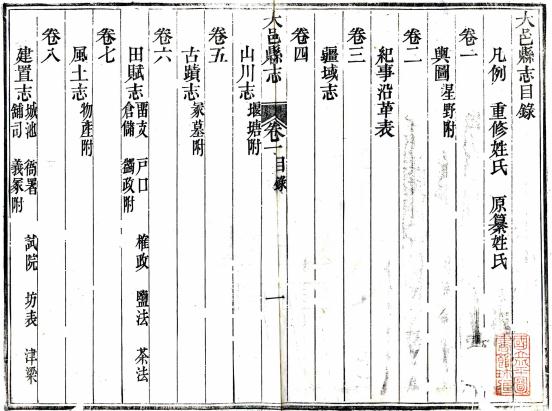 大邑縣志目錄
凡例 重修姓氏 原纂姓氏
卷一
輿圖 星野附
卷二
紀事沿革表
卷三
疆域志
卷四
大邑縣志 卷一 目錄 一
山川志 堰塘附
卷五
古蹟志 冢墓附
卷六
田賦志 雷支 戶口 榷政 鹽法 茶法
倉儲 蠲政附
卷七
風土志 物產附
卷八
建置志 城池 衙署 試院 坊表 津梁
舖司 義冢附